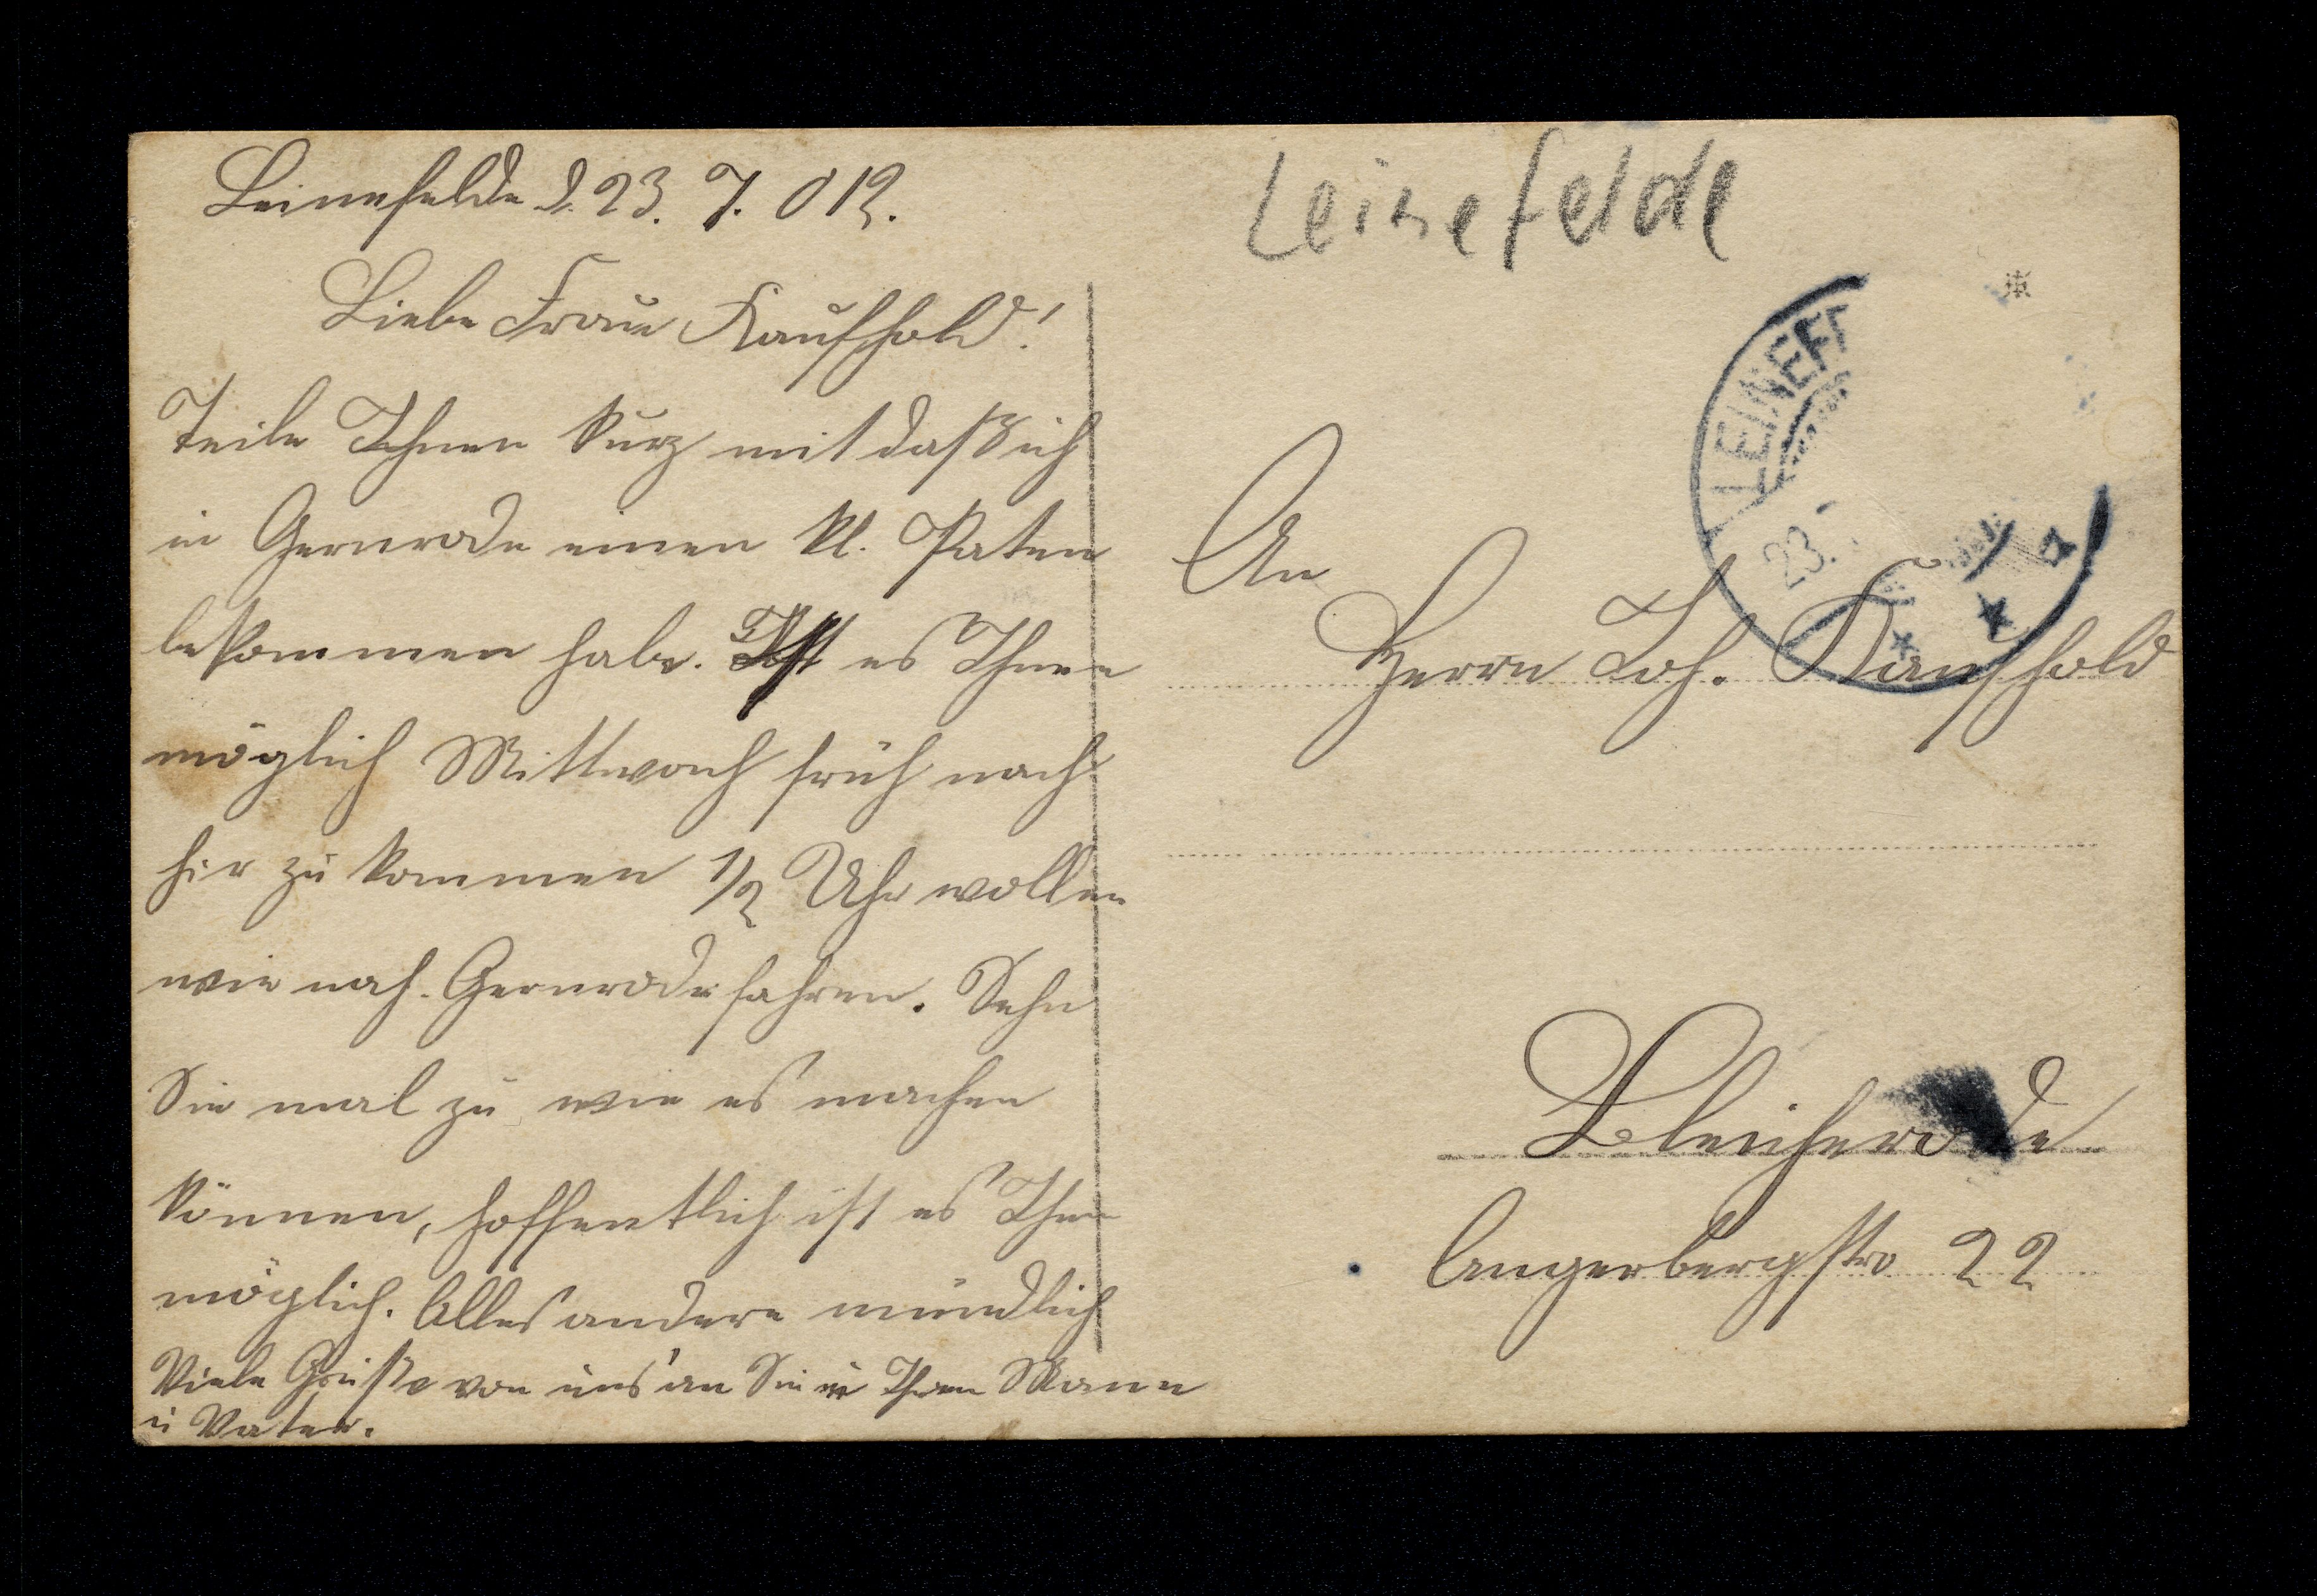 Leinefelde d. 23. 7. 012.
Liebe Frau Kaufhold!
Teile Ihnen kurz mit daß ich
in Gernrode einen kl. Paten
bekommen habe. Ist es Ihnen
möglich Mittwoch früh nach
hir zu kommen 1/2 Uhr wollen
wir nach Gernrode fahren. Sehn
Sie mal zu wie es machen
können, hoffentlich ist es Ihnen
möglich. Alles andere mündlich
Viele Grüße von uns an Sie u Ihren Mann
u Vater.
Leinefelde
LEINEF
23.
An
Herrn Joh. Kaufhold
Bleicherode
Angerbergstr 22